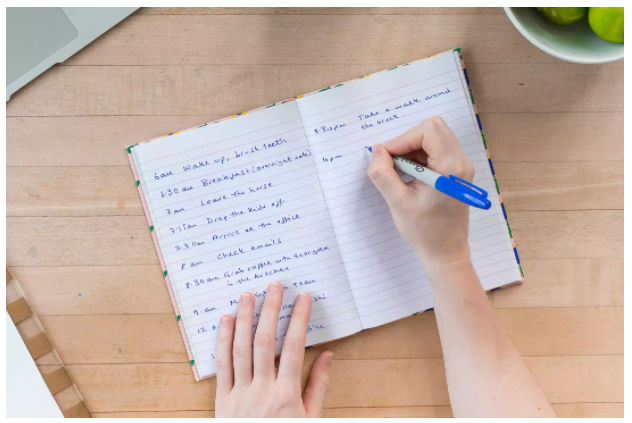 6am Wake up, brush teeth
6:30am Breakfast (overnight oats)
7am Leave the house
7:15am Drop the kids off
7:30am Arrive at the office
8am Check emails
8:30am Grab coffee with Georgina
in the kitchen
9am Team
12
3:30pm Take a walk around
the block
4pm